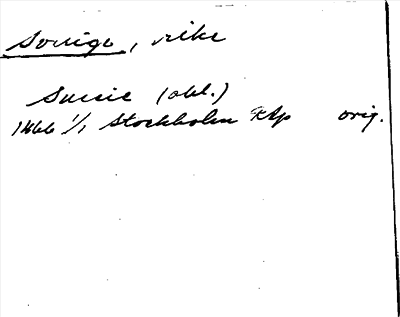 Sverige, rike
Swerie (obl.)
1466 1/1 Stockholm RAp orig.